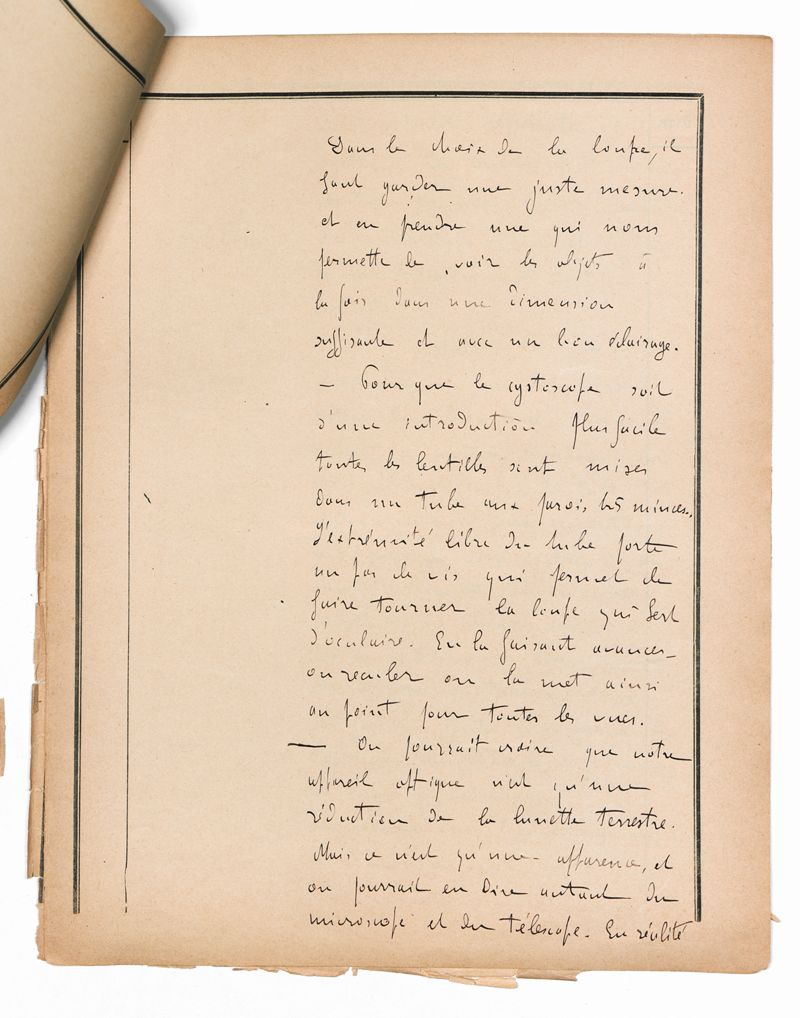 Dans le choix de la loupe, il
faut garder une juste mesure.
et en prendre une qui nous
permette de voir les objets à
la fois dans une dimension
suffisante et avec un bon éclairage.
— Pour que le cystoscope soit
d'une introduction plus facile
toutes les lentilles sont mises
dans un tube aux parois très minces.
L'extrémité libre du tube porte
un pas de vis qui permet de
faire tourner la loupe qui sert
d'oculaire. En la faisant avancer
ou reculer on la met ainsi
au point pour toutes les vues.
— On pourrait croire que notre
appareil optique n'est qu'une
réduction de la lunette terrestre.
Mais ce n'est qu'une apparence, et
on pourrait en dire autant du
microscope et du télescope. En réalité